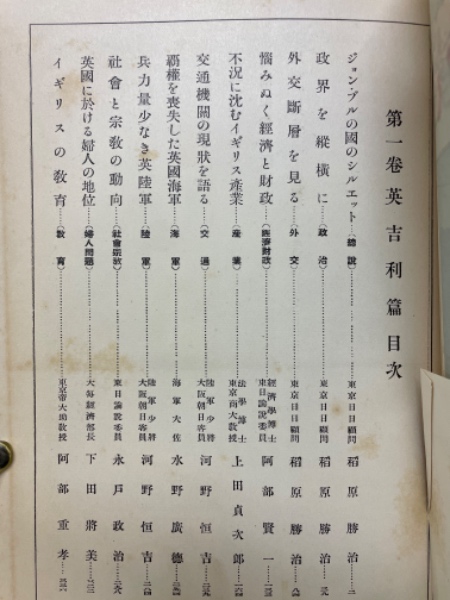 第一卷英吉利篇目次
ジョン・ブルの國のシルエット（總說）……東京日日顧問 稻原勝治
政界を縱橫に（政治）……東京日日顧問 稻原勝治
外交斷層を見る（外交）……東京日日顧問 稻原勝治
惱みぬく經濟と財政（經濟財政）……經濟學博士 東日論說委員 阿部賢一
不況に沈むイギリス產業（產業）……法學博士 東京商大敎授 上田貞次郞
交通機關の現狀を語る（交通）……陸軍少將 大阪朝日客員 河野恒吉
覇權を喪失した英國海軍（海軍）……海軍大佐 水野廣德
兵力量少なき英陸軍（陸軍）……陸軍少將 大阪朝日客員 河野恒吉
社會と宗敎の動向（社會宗敎）……東日論說委員 永戶政治
英國に於ける婦人の地位（婦人問題）……大每經濟部長 下田將美
イギリスの敎育（敎育）……東京帝大助敎授 阿部重孝